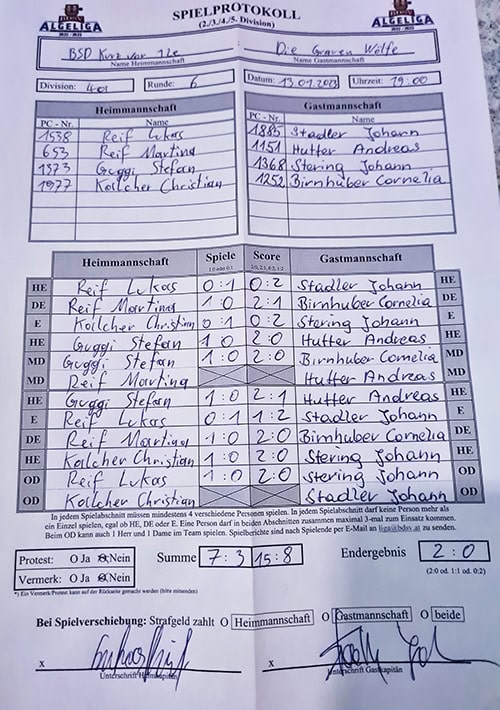 ALGELIGA
SPIELPROTOKOLL
(2./3./4./5. Division)
ALGELIGA
BSD Kurz vor 12e : Die Grauen Wölfe
Name Heimmannschaft Name Gastmannschaft
Division: 401 Runde: 6 Datum: 13.01.2023 Uhrzeit: 19:00
Heimmannschaft Gastmannschaft
PC - Nr. Name PC - Nr. Name
1538 Reif Lukas 1885 Stadler Johann
653 Reif Martina 1151 Hutter Andreas
1373 Guggi Stefan 1368 Stering Johann
1977 Kollcher Christian 1252 Birnhuber Cornelia
Heimmannschaft Spiele Score Gastmannschaft
1:0 oder 0:1 2:0, 2:1, 0:2, 1:2
HE Reif Lukas 0:1 0:2 Stadler Johann HE
DE Reif Martina 1:0 2:1 Birnhuber Cornelia DE
E Kollcher Christian 0:1 0:2 Stering Johann E
HE Guggi Stefan 1:0 2:0 Hutter Andreas HE
MD Guggi Stefan 1:0 2:0 Birnhuber Cornelia MD
MD Reif Martina Hutter Andreas MD
HE Guggi Stefan 1:0 2:1 Hutter Andreas HE
E Reif Lukas 0:1 1:2 Stadler Johann E
DE Reif Martina 1:0 2:0 Birnhuber Cornelia DE
HE Kollcher Christian 1:0 2:0 Stering Johann HE
OD Reif Lukas 1:0 2:0 Stering Johann OD
OD Kollcher Christian Stadler Johann OD
In jedem Spielabschnitt müssen mindestens 4 verschiedene Personen spielen. In jedem Spielabschnitt darf keine Person mehr als
ein Einzel spielen, egal ob HE, DE oder E. Eine Person darf in beiden Abschnitten zusammen maximal 3-mal zum Einsatz kommen.
Beim OD kann auch 1 Herr und 1 Dame im Team spielen. Spielberichte sind nach Spielende per E-Mail an liga@bdsv.at zu senden.
Protest: O Ja O Nein Summe 7:3 15:8 Endergebnis 2:0
Vermerk: O Ja O Nein (2:0 od. 1:1 od. 0:2)
*) Ein Vermerk/Protest kann auf der Rückseite gemacht werden (bitte mitsenden)
Bei Spielverschiebung: Strafgeld zahlt O Heimmannschaft O Gastmannschaft O beide
x x
Unterschrift Heimkapitän Unterschrift Gastkapitän